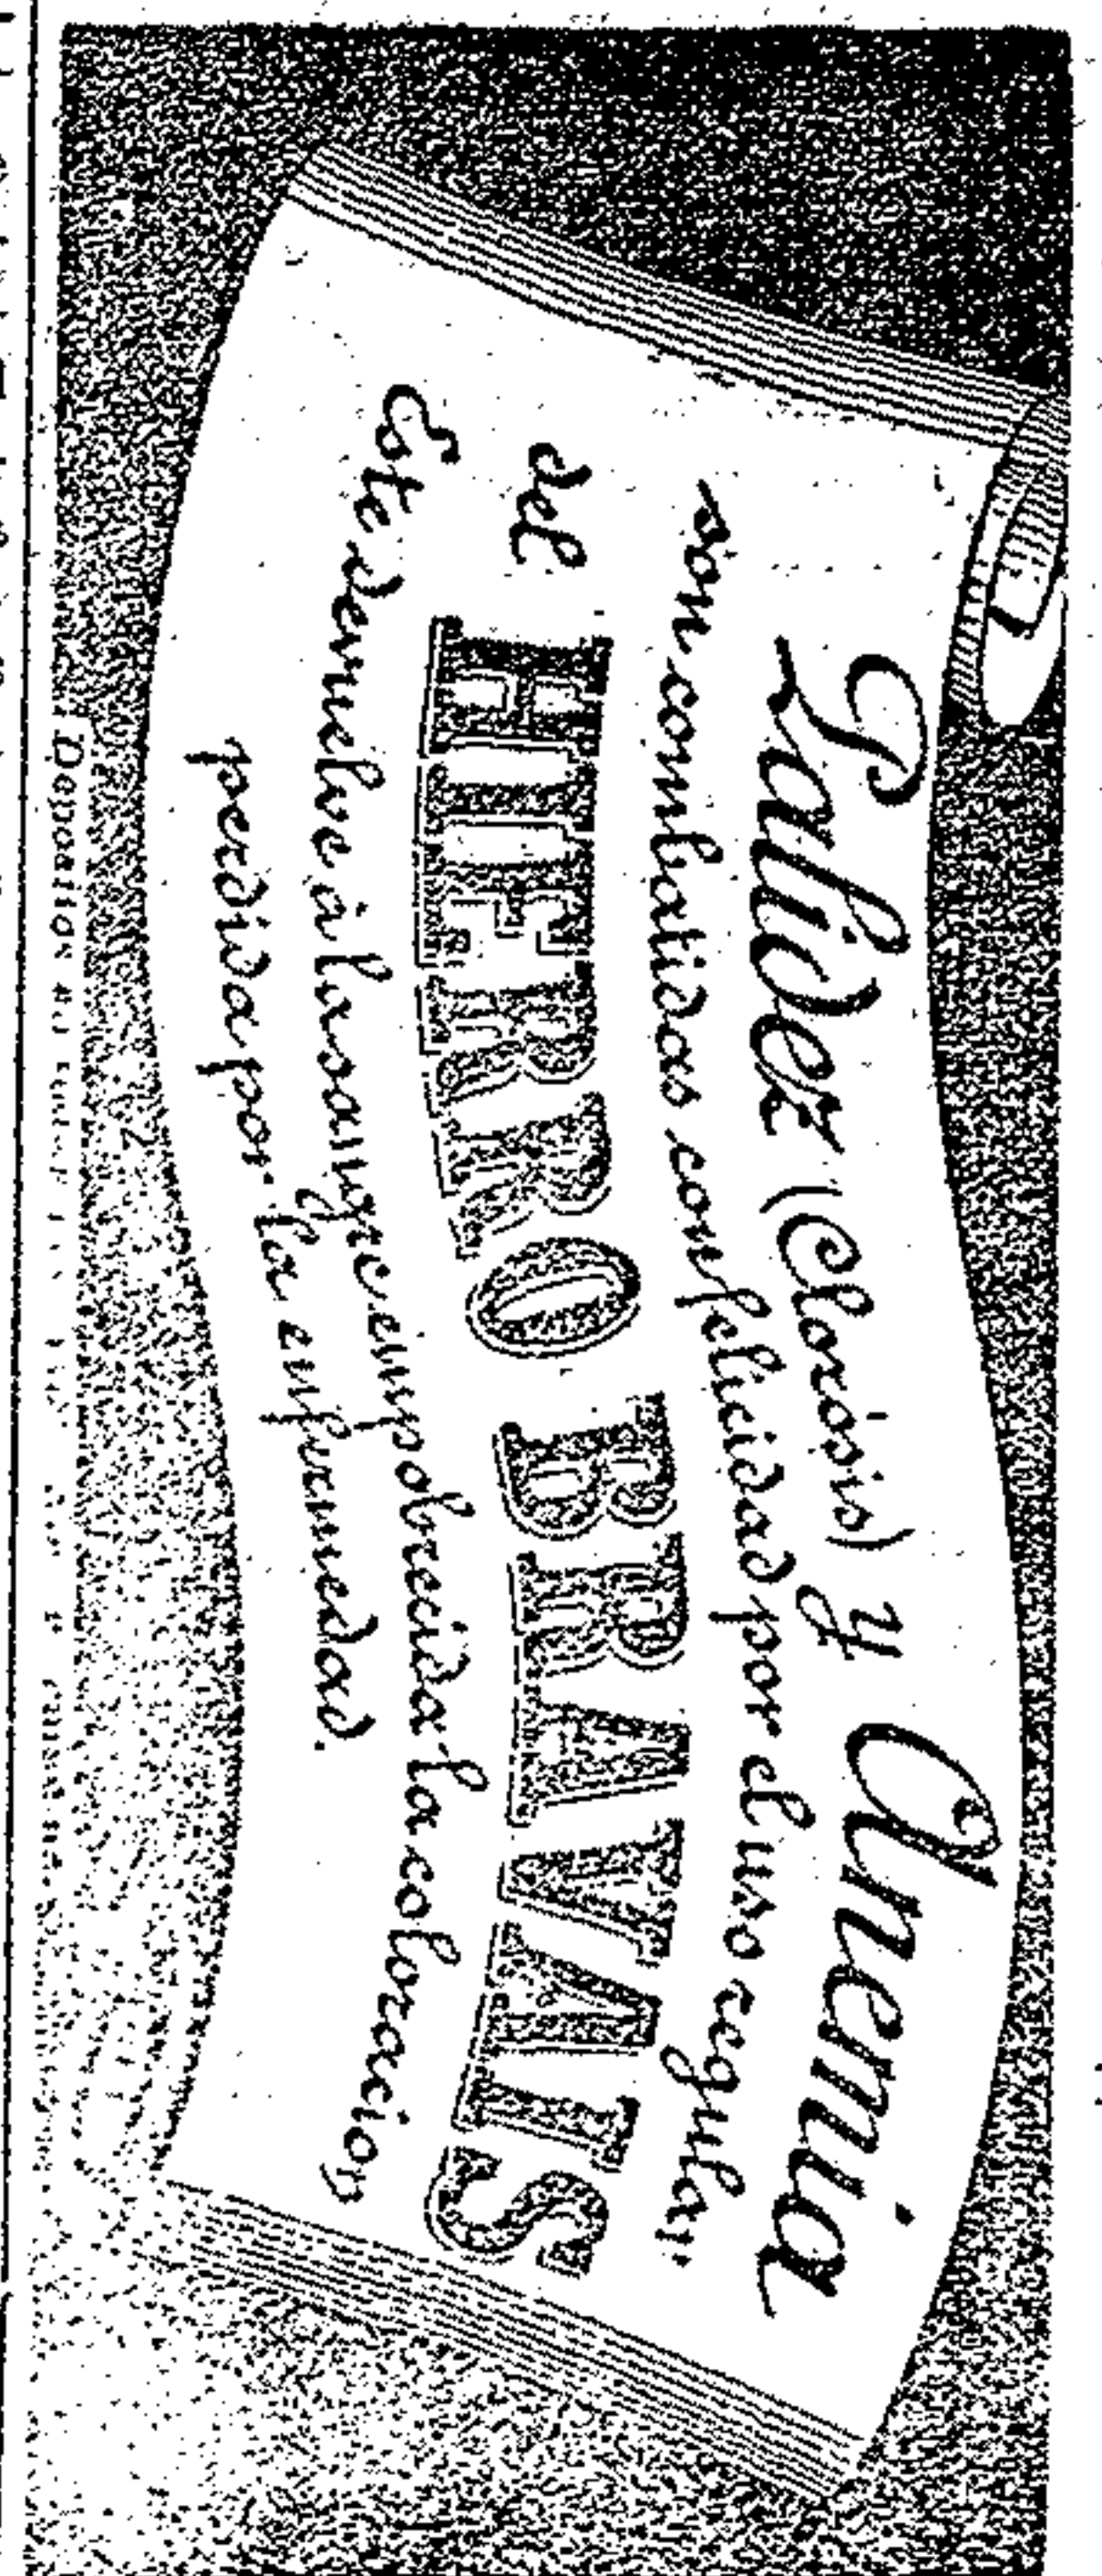 Palidez (Clorósis) y Anemia
son combatidas con felicidad por el uso regular
del HIERRO BRAVAIS
Este devuelve á la sangre empobrecida la coloracion
perdida por la enfermedad.
Depositos en